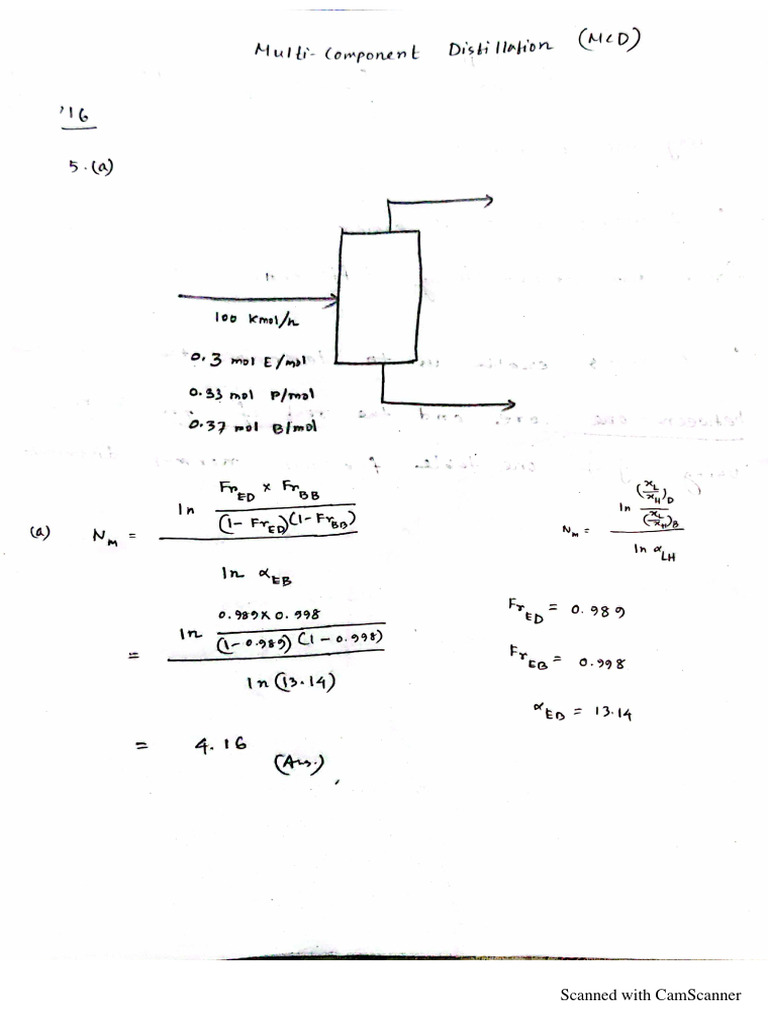 Multi-Component Distillation (MCD)
'16
5.(a)
100 Kmol/h
0.3 mol E/mol
0.33 mol P/mol
0.37 mol B/mol
(a) N_m = ln (Fr_ED × Fr_BB) / ((1-Fr_ED)(1-Fr_BB)) / ln α_EB
N_m = ln (x_L/x_H)_D / (x_L/x_H)_B / ln α_LH
= ln (0.989×0.998) / ((1-0.989)(1-0.998)) / ln(13.14)
Fr_ED = 0.989
Fr_EB = 0.998
α_EB = 13.14
= 4.16 (Ans.)
Scanned with CamScanner